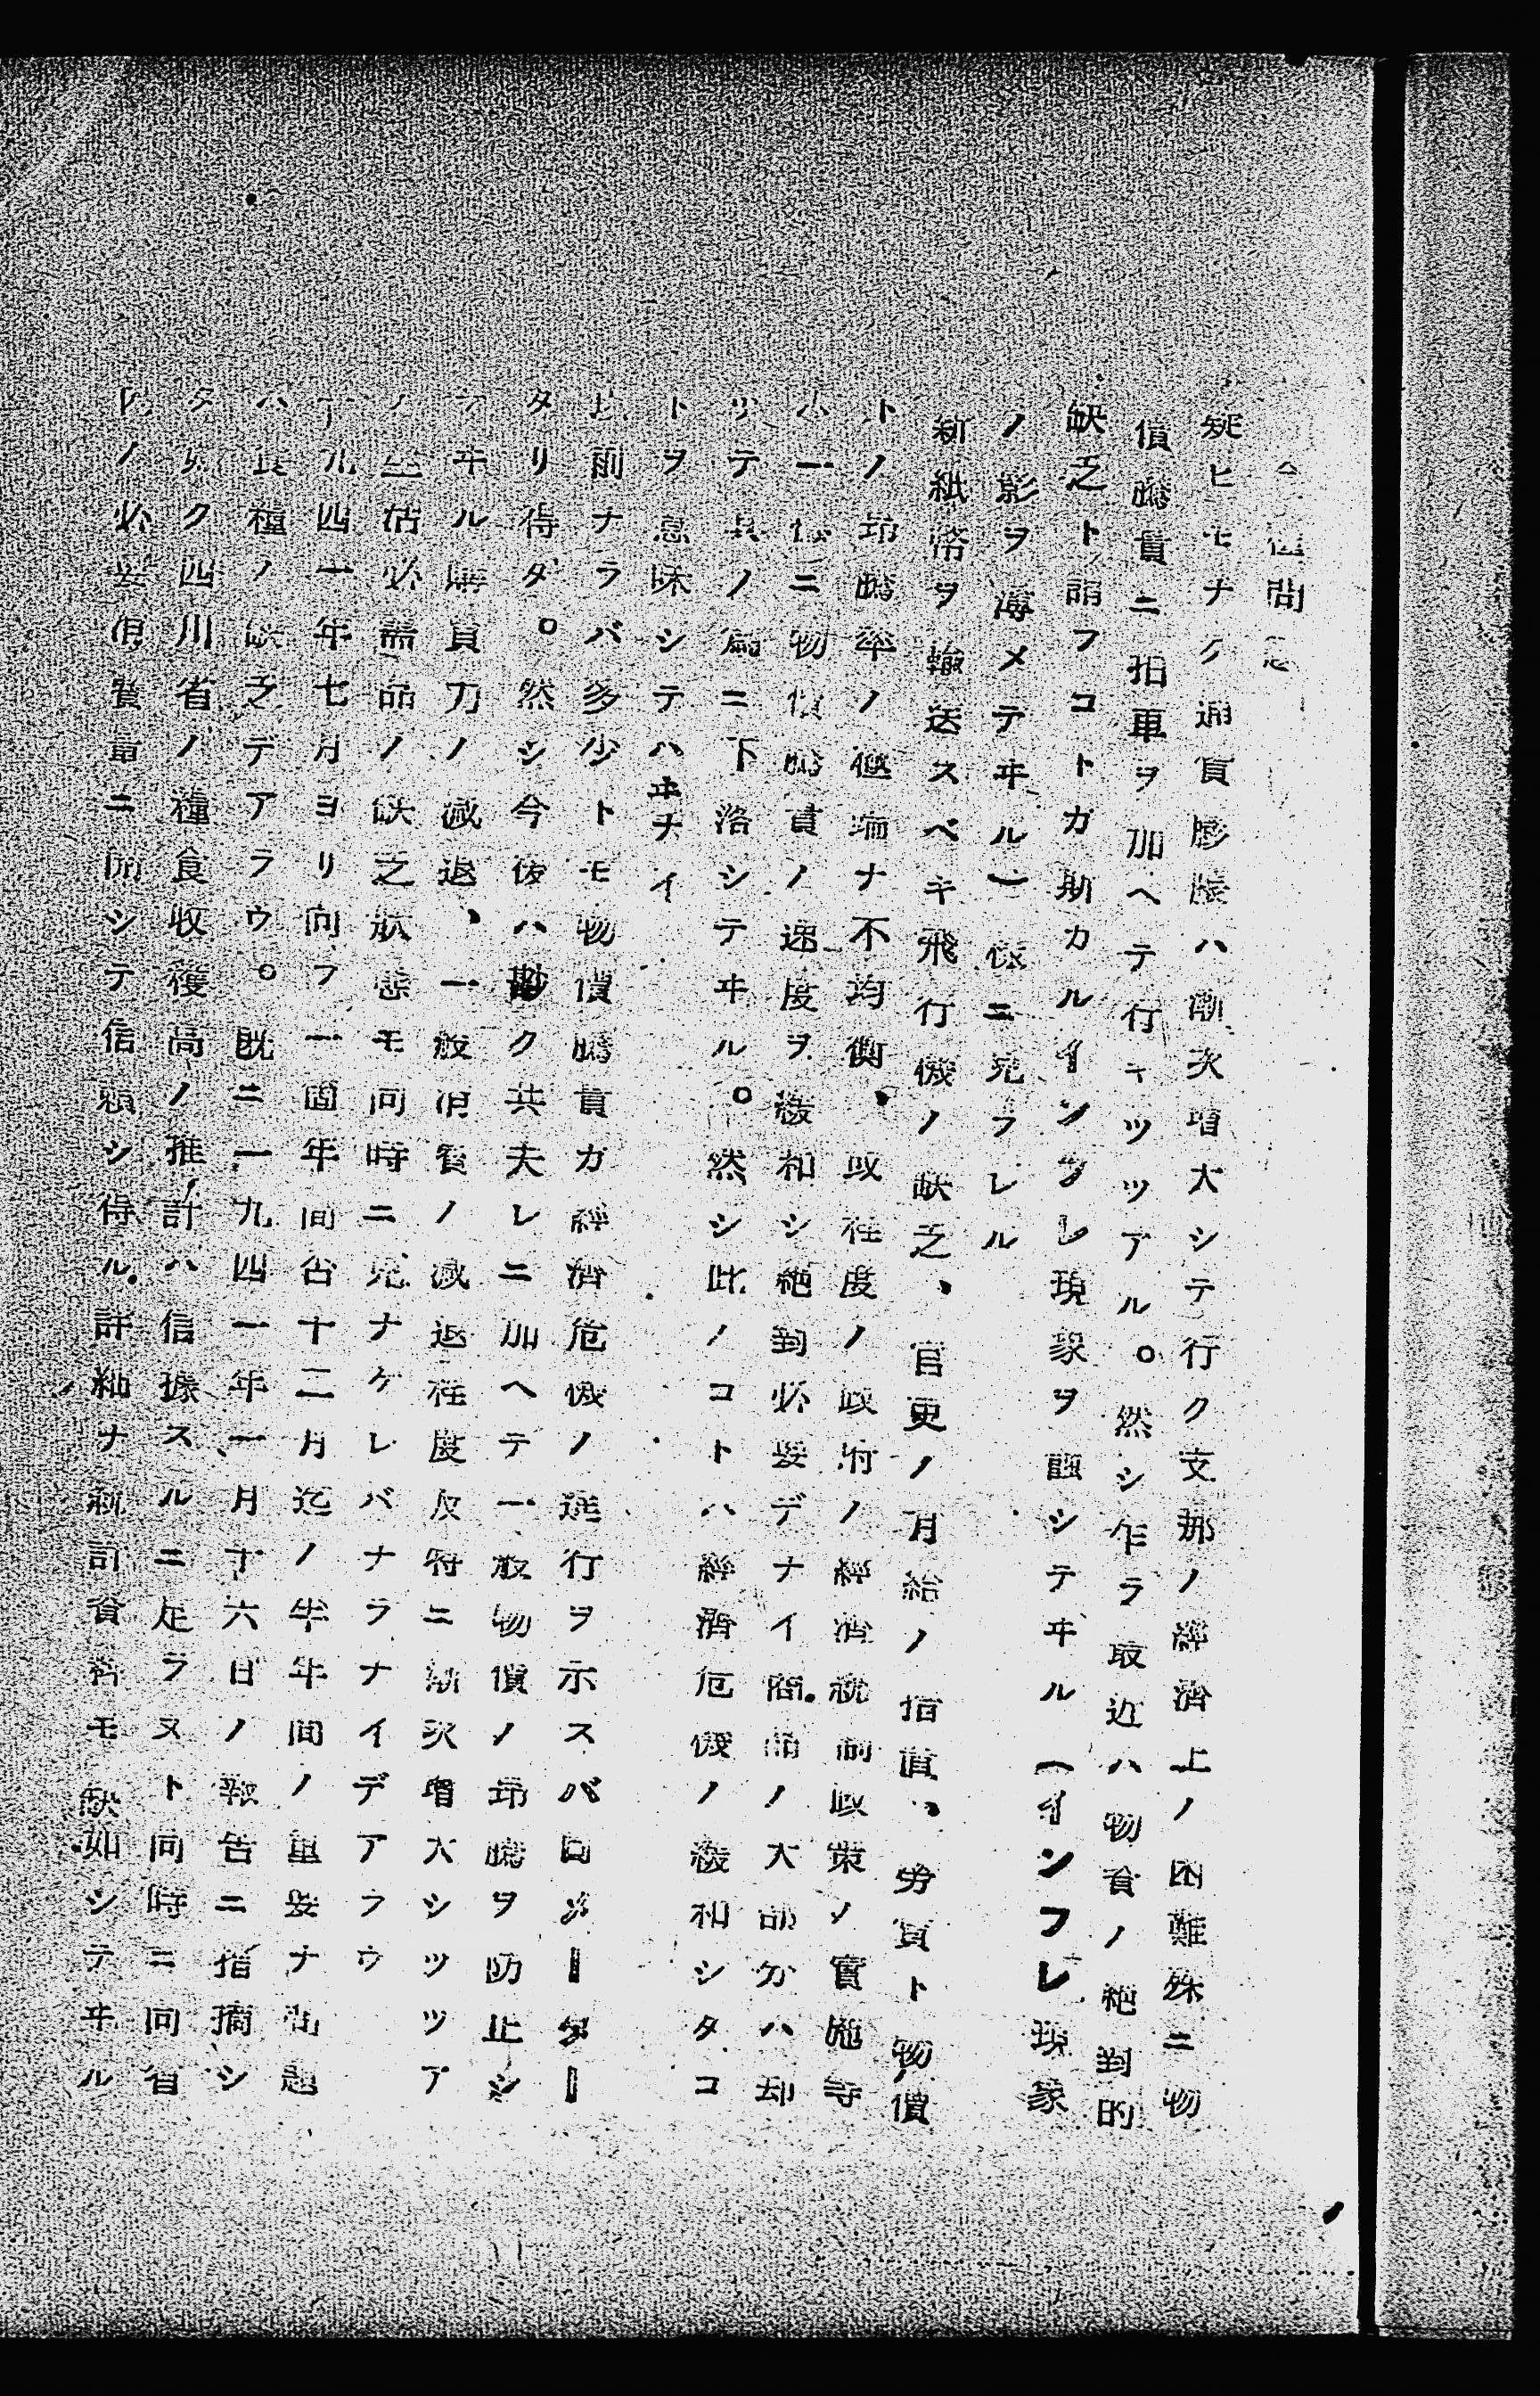 問
疑ヒモナク通貨膨脹ハ漸次増大シテ行ク支那ノ經濟上ノ困難殊ニ物
價騰貴ニ拍車ヲ加ヘテ行キツツアル。然シ乍ラ最近ハ物資ノ絶對的
缺乏ト謂フコトガ斯カルインフレ現象ヲ醸シテヰル(インフレ現象
ノ影ヲ薄メテヰル)様ニ見フレル
新紙幣ヲ輸送スベキ飛行機ノ缺乏、官吏ノ月給ノ据置、勞賃ト物價
トノ昂騰率ノ極端ナ不均衡、或程度ノ政府ノ經濟統制政策ノ實施等
ハ一様ニ物價騰貴ノ速度ヲ緩和シ絶對必要デナイ商品ノ大部分ハ却
ツテ其ノ爲ニ下落シテヰル。然シ此ノコトハ經濟危機ノ緩和シタコ
トヲ意味シテハヰナイ
以前ナラバ多少トモ物價騰貴ガ經濟危機ノ進行ヲ示スバロメーター
タリ得タ。然シ今後ハ尠ク共夫レニ加ヘテ一般物價ノ昂騰ヲ防止シ
テヰル購買力ノ減退、一般消費ノ減退程度及特ニ漸次増大シツツア
ル生活必需品ノ缺乏狀態モ同時ニ見ナケレバナラナイデアラウ
一九四一年七月ヨリ向フ一箇年間否十二月迄ノ半年間ノ重要ナ問題
ハ食糧ノ缺乏デアラウ。既ニ一九四一年一月十六日ノ報告ニ指摘シ
タ如ク四川省ノ糧食收穫高ノ推計ハ信據スルニ足ラヌト同時ニ同省
民ノ必要消費量ニ關シテ信頼シ得ル詳細ナ統計資料モ缺如シテヰル